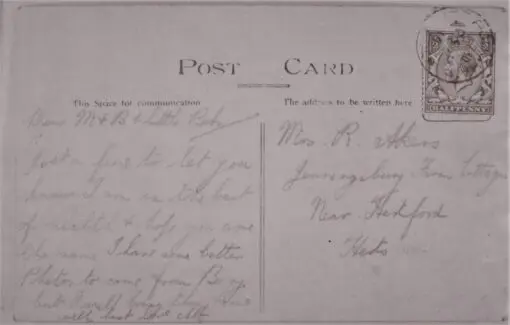 POST CARD
This Space for communication
The address to be written here
HALFPENNY
Dear M & B & Little
Just a line to let you
know I am in the best
of health & hope you are
the same I have some better
Photos to come from
but I will bring them
with best love Alf
Mrs. R. Akers
Farm Cottages
Near Hertford
Herts